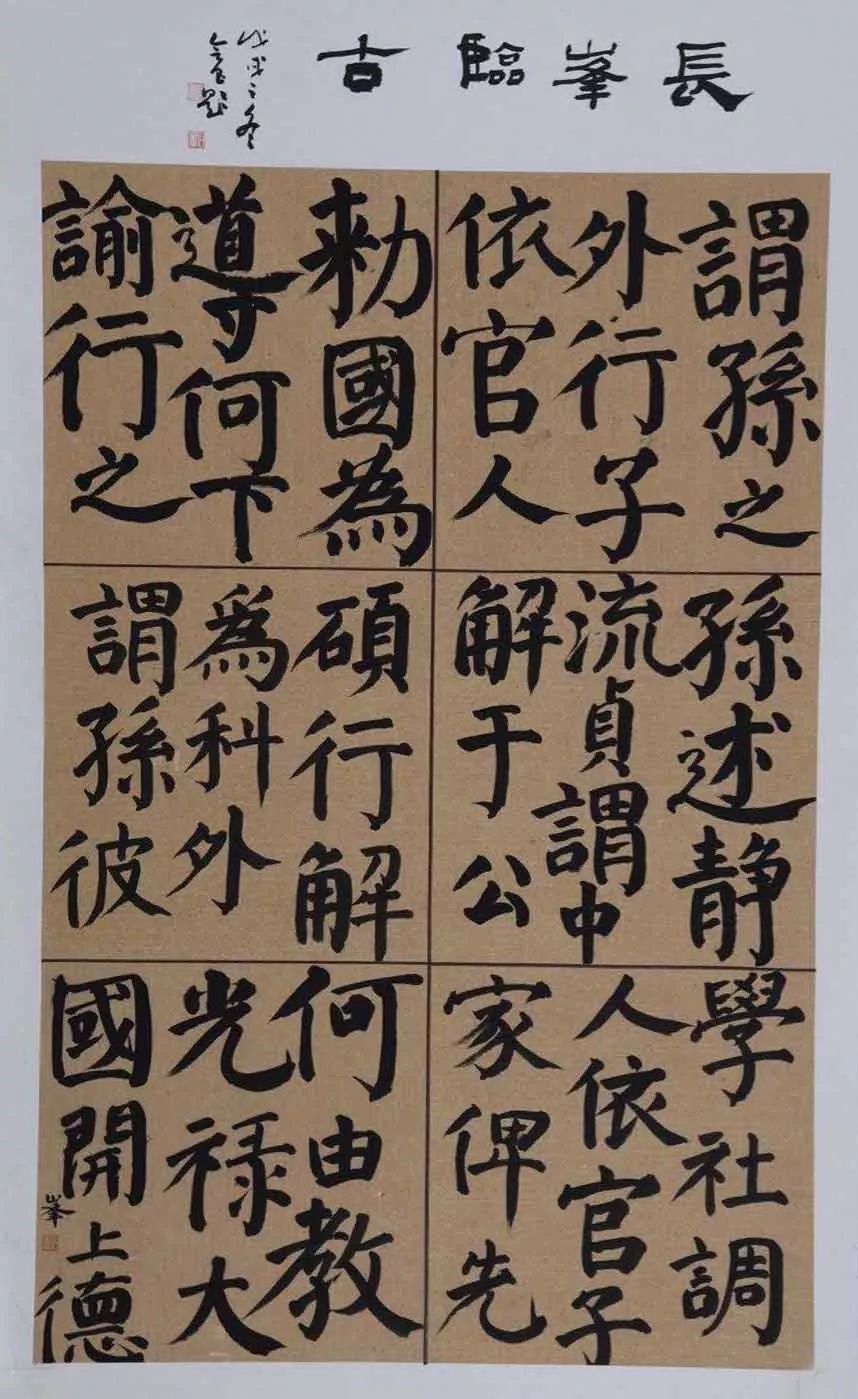 長峯臨古
戊戌之冬
謂孫之
外行子
依官人
勑國為
導何下
諭行之
孫述静
流貞謂中
解于公
碩行解
爲科外
謂孫彼
學社調
人依官子
家俾先
何由教
光禄大
國開上德
峯